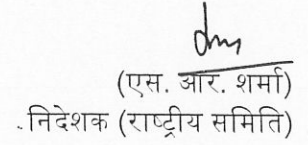 (एस. आर. शर्मा)
निदेशक (राष्ट्रीय समिति)